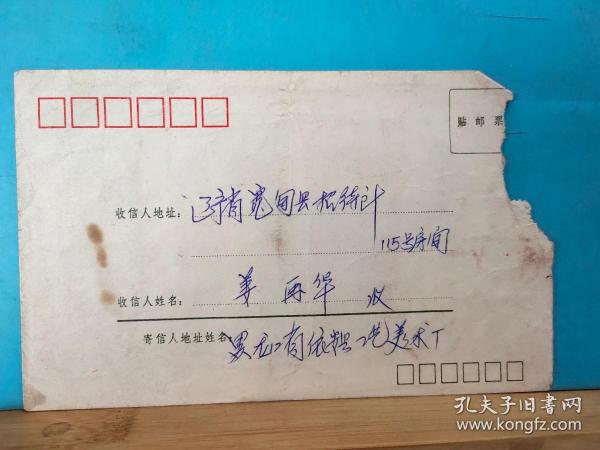 贴邮票
收信人地址: 辽宁省宽甸县招待所
115号房间
收信人姓名: 姜再华 收
寄信人地址姓名: 黑龙江省依兰县工艺美术厂
孔夫子旧书网
www.kongfz.com